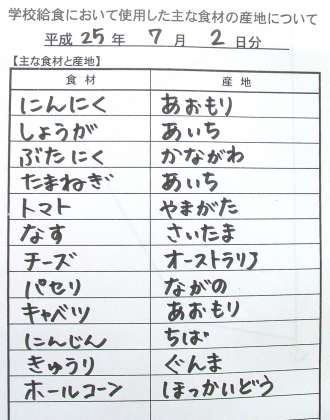 学校給食において使用した主な食材の産地について
平成 25 年 7 月 2 日分
【主な食材と産地】
食材 産地
にんにく あおもり
しょうが あいち
ぶたにく かながわ
たまねぎ あいち
トマト やまがた
なす さいたま
チーズ オーストラリア
パセリ ながの
キャベツ あおもり
にんじん ちば
きゅうり ぐんま
ホールコーン ほっかいどう